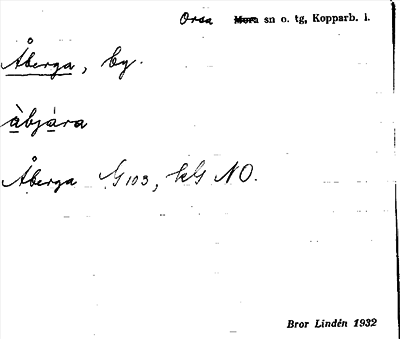 Orsa Mora sn o. tg, Kopparb. l.
Åberga, by.
àbjàra
Åberga G 103, kG NO.
Bror Lindén 1932